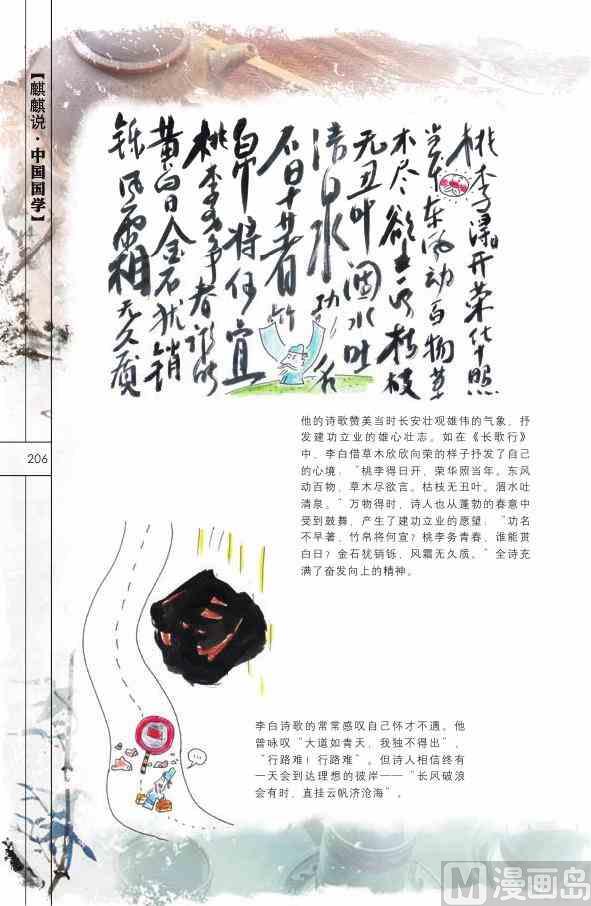 【麒麒说·中国国学】
桃李得开荣华照
当年东风动百物草
木尽欲枯枝
无丑叶涸水吐
清泉功名
不早著竹
帛将何宣
桃李务谁能
贯白日金石犹销
铄风霜无久质
他的诗歌赞美当时长安壮观雄伟的气象，抒
发建功立业的雄心壮志。如在《长歌行》
中，李白借草木欣欣向荣的样子抒发了自己
的心境：“桃李得日开，荣华照当年。东风
动百物，草木尽欲言。枯枝无丑叶，涸水吐
清泉。”万物得时，诗人也从蓬勃的春意中
受到鼓舞，产生了建功立业的愿望：“功名
不早著，竹帛将何宣？桃李务青春，谁能贯
白日？金石犹销铄，风霜无久质。”全诗充
满了奋发向上的精神。
206
李白诗歌的常常感叹自己怀才不遇。他
曾咏叹“大道如青天，我独不得出”，
“行路难！行路难”。但诗人相信终有
一天会到达理想的彼岸——“长风破浪
会有时，直挂云帆济沧海”。
漫画岛